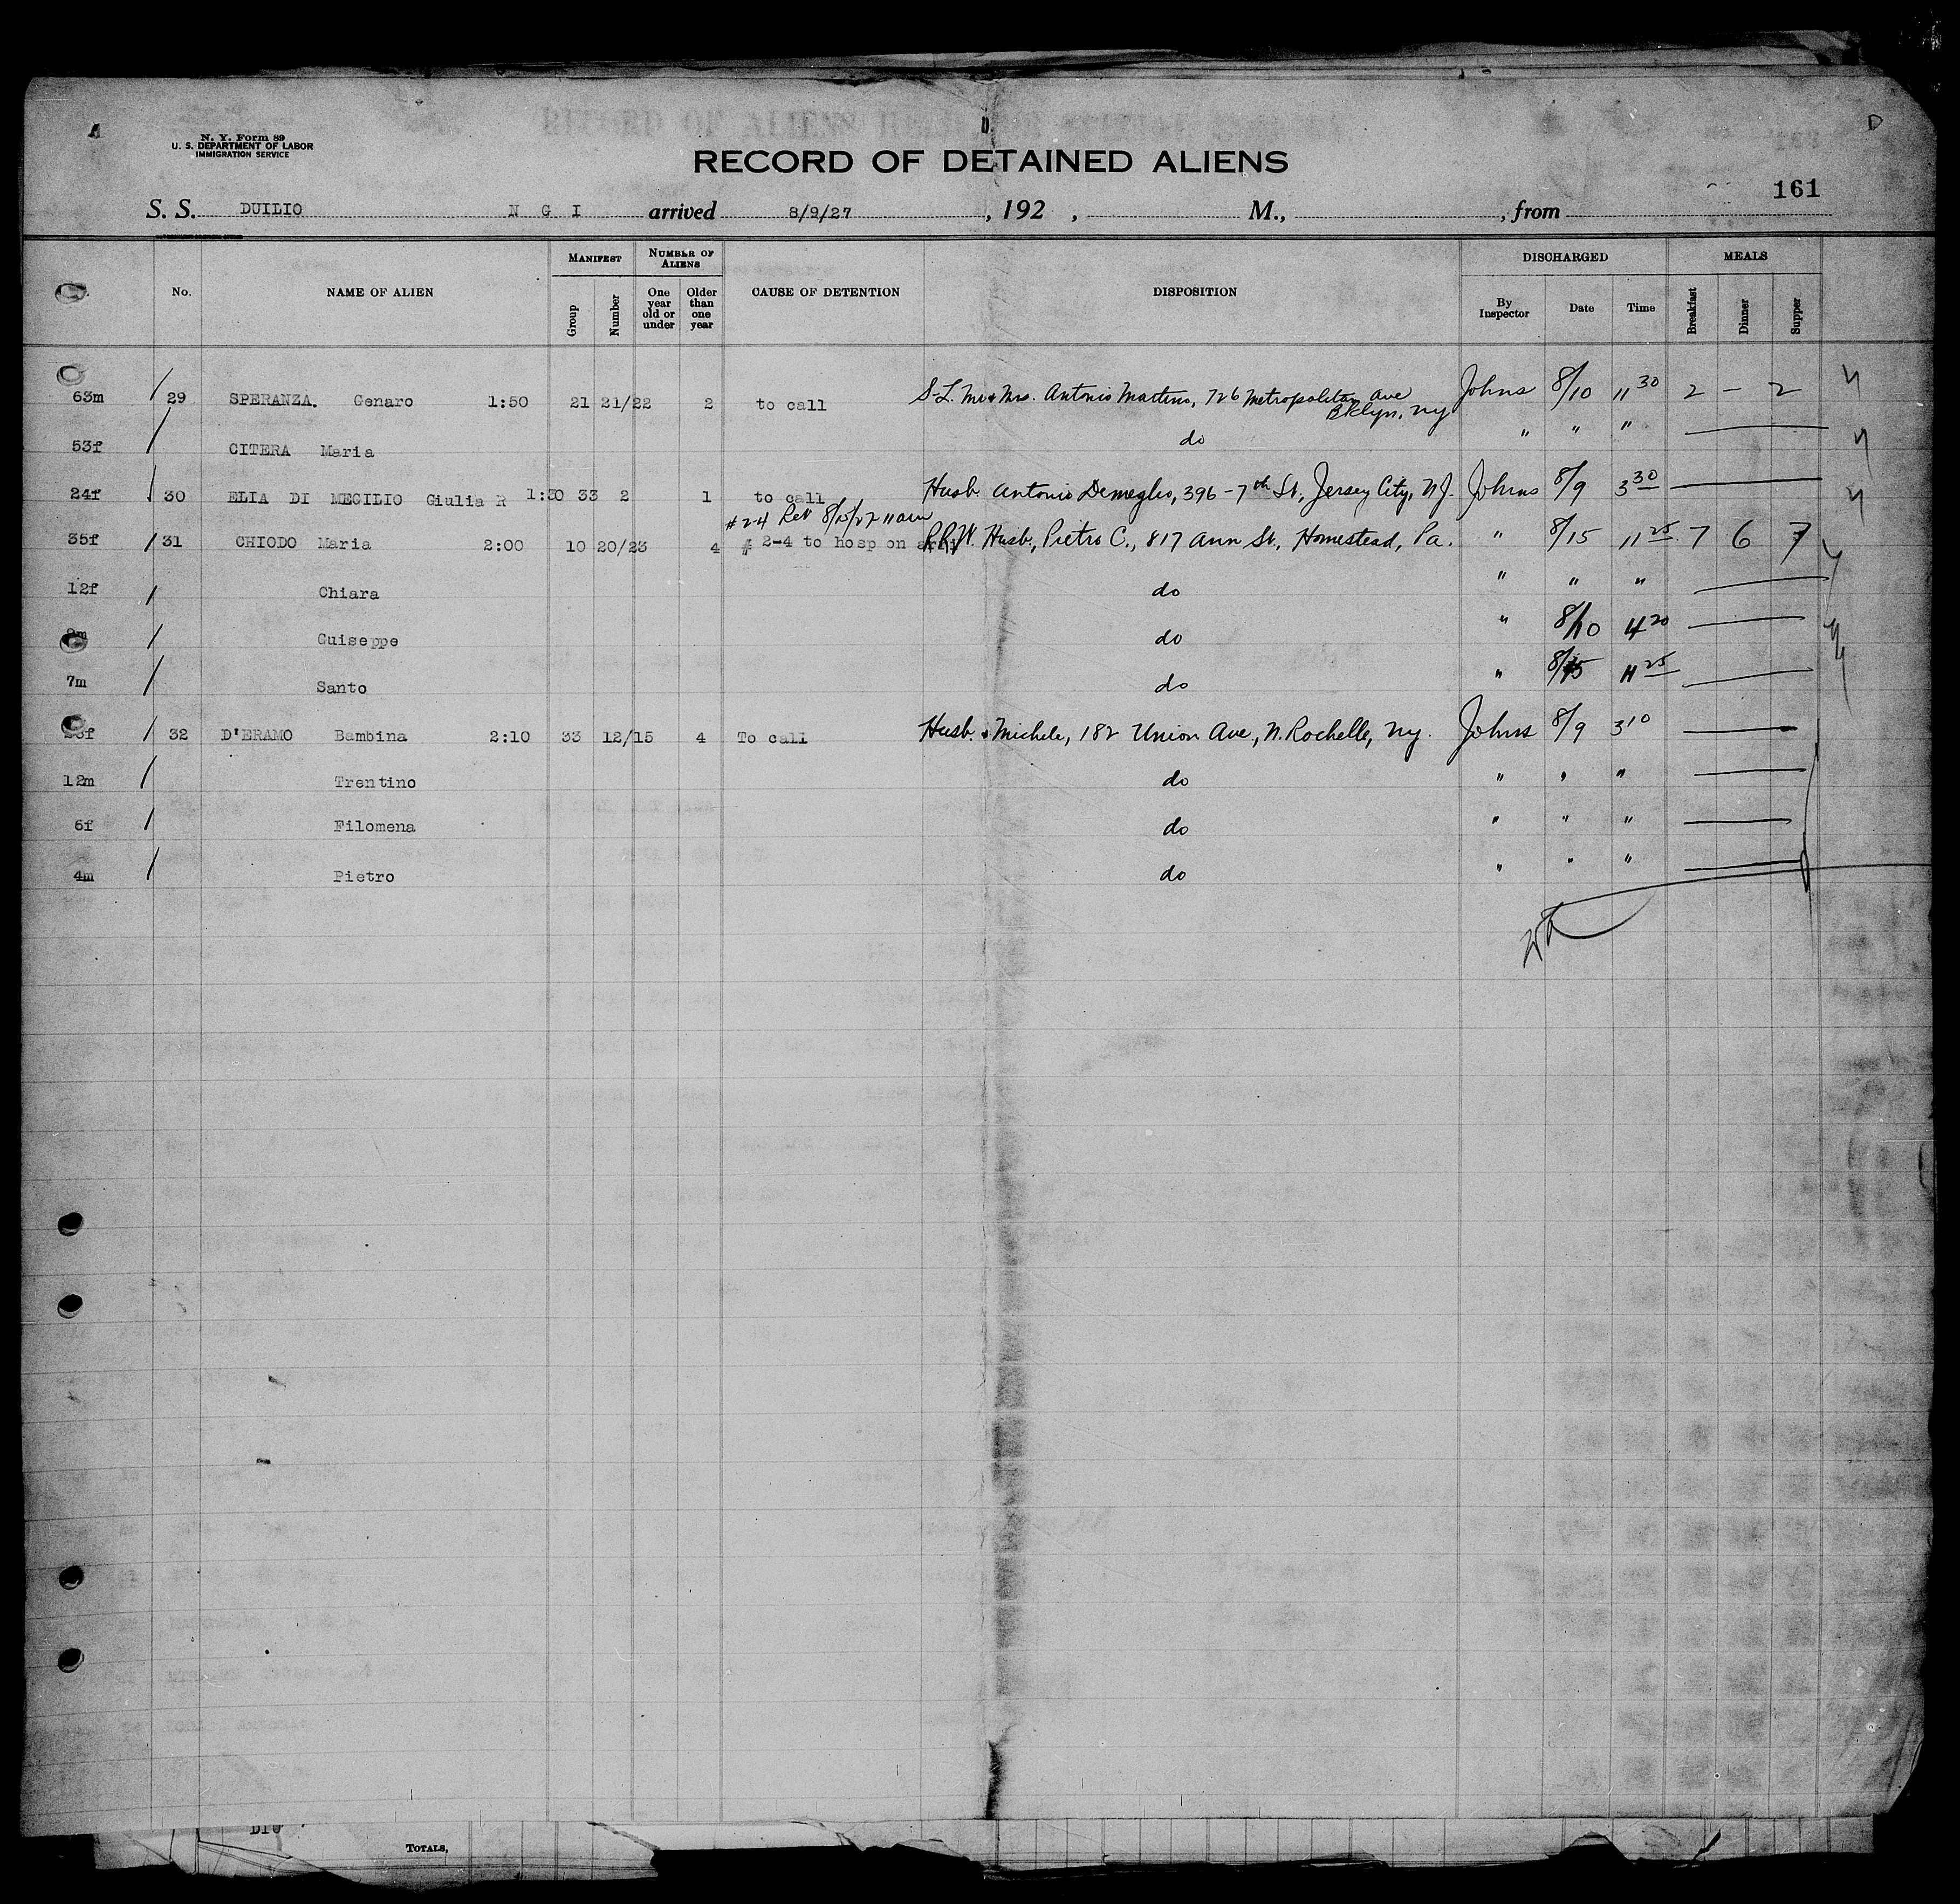 N. Y. Form 89
U. S. DEPARTMENT OF LABOR
IMMIGRATION SERVICE
RECORD OF DETAINED ALIENS
161
S. S. DUILIO N G I arrived 8/9/27 , 192 , M., , from
No. NAME OF ALIEN MANIFEST Group Number NUMBER OF ALIENS One year old or under Older than one year CAUSE OF DETENTION DISPOSITION DISCHARGED By Inspector Date Time MEALS Breakfast Dinner Supper
63m / 29 SPERANZA. Genaro 1:50 21 21/22 2 to call S-L. Mr & Mrs. Antonio Martino, 726 Metropolitan Ave Johns 8/10 11 30 2 — 2
Bklyn, NY
53f / CITERA Maria do " " "
24f / 30 ELIA DI MEGILIO Giulia R 1:50 33 2 1 to call Husb. Antonio Demeglio, 396 - 7th St., Jersey City, N.J. Johns 8/9 3 30
#2-4 Ret 8/15/27 11 am
35f / 31 CHIODO Maria 2:00 10 20/23 4 # 2-4 to hosp on R.R.W. Husb, Pietro C., 817 Ann St, Homestead, Pa. " 8/15 11 25 7 6 7
12f / Chiara do " " "
/ Guiseppe do " 8/10 4 20
7m / Santo do " 8/15 11 25
/ 32 D'ERAMO Bambina 2:10 33 12/15 4 To call Husb. Michele, 182 Union Ave, N. Rochelle, NY. Johns 8/9 3 10
12m / Trentino do " " "
6f / Filomena do " " "
4m / Pietro do " " "
TOTALS,